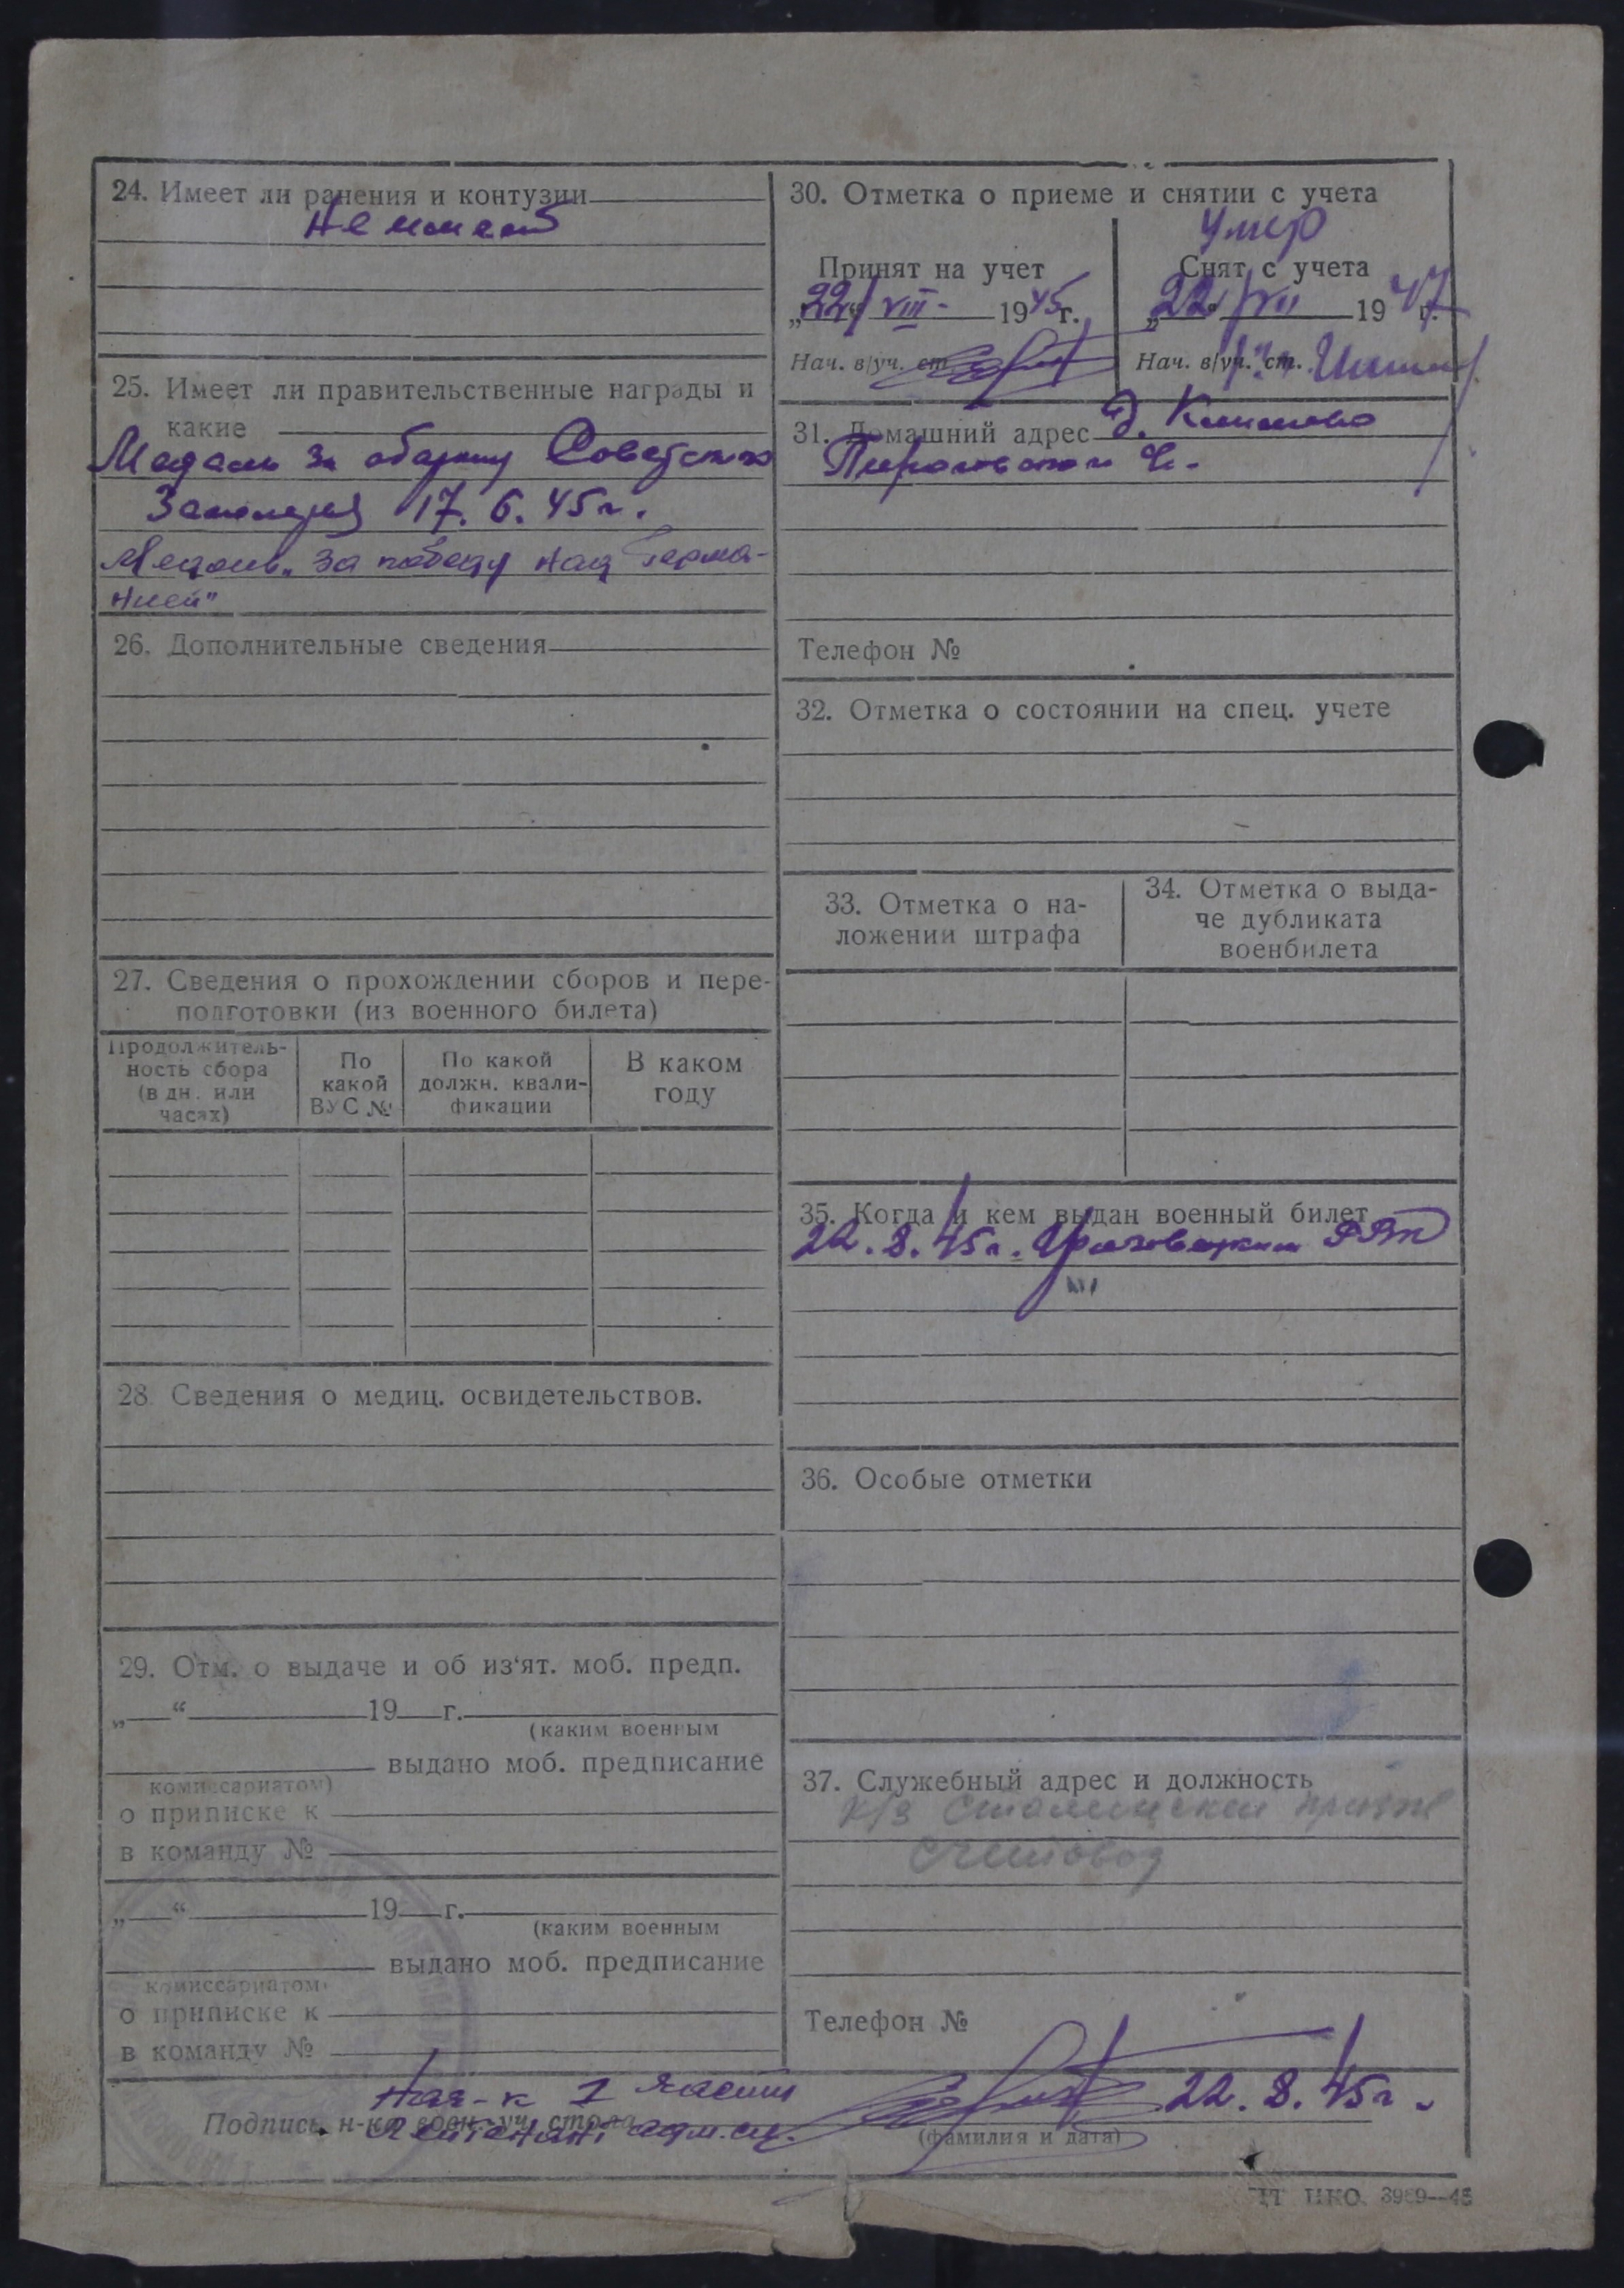 24. Имеет ли ранения и контузии
Не имеет
25. Имеет ли правительственные награды и
какие
Медаль за оборону Советского
Заполярья 17. 6. 45 г.
Медаль „За победу над Герма-
нией"
26. Дополнительные сведения
27. Сведения о прохождении сборов и пере-
подготовки (из военного билета)
Продолжитель-
ность сбора
(в дн. или
часах)
По
какой
ВУС №
По какой
должн. квали-
фикации
В каком
году
28. Сведения о медиц. освидетельствов.
29. Отм. о выдаче и об из‘ят. моб. предп.
„ “ 19 г.
(каким военным
выдано моб. предписание
комиссариатом)
о приписке к
в команду №
„ “ 19 г.
(каким военным
выдано моб. предписание
комиссариатом)
о приписке к
в команду №
30. Отметка о приеме и снятии с учета
Умер
Принят на учет
„22“ VIII- 1945 г.
Нач. в/уч. ст.
Снят с учета
„22“ VII 1947 г.
Нач. в/уч. ст.
31. Домашний адрес д.
Телефон №
32. Отметка о состоянии на спец. учете
33. Отметка о на-
ложении штрафа
34. Отметка о выда-
че дубликата
военбилета
35. Когда и кем выдан военный билет
22. 8. 45 г. Грязовецким РВК
36. Особые отметки
37. Служебный адрес и должность
к/з
счетовод
Телефон №
Нач-к 1 части
Подпись н-ка воен.-уч. стола
лейтенант адм. сл.
22. 8. 45 г.
(фамилия и дата)
НКО. 3989—45